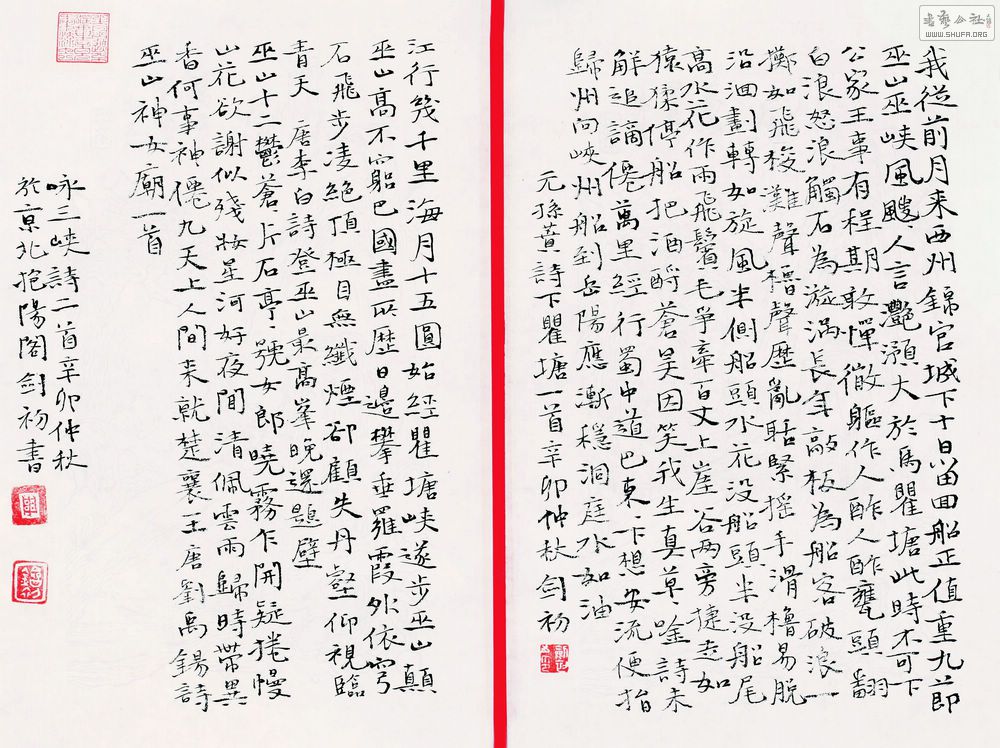 我從前月来西州錦官城下十日留回船正值重九節
巫山巫峡風颼々人言灩澦大於馬瞿塘此時不可下
公家王事有程期敢憚微軀作人酢人酢甕頭翻
白浪怒浪觸石為漩渦長年敲板為船客破浪一
擲如飛梭灘聲櫓聲歷亂聒緊摇手滑櫓易脱
沿洄劃轉如旋風半側船頭水花没船頭半没船尾
高水花作雨飛鬢毛爭牽百丈上崖谷兩旁捷走如
猿猱停船把酒酹蒼昊因笑我生真草々唫詩未
解追謫僊萬里經行蜀中道巴東下想安流便指
歸州向峡州船到岳陽應漸穩洞庭水如油
元孫蕡詩下瞿塘一首辛卯仲秋剑初
江行幾千里海月十五圓始經瞿塘峡遂步巫山巔
巫山高不窮巴國盡所歷日邊攀垂蘿霞外依穹
石飛步凌絶頂極目無纖煙卻顧失丹壑仰視臨
青天 唐李白詩登巫山最高峯晚還題壁
巫山十二鬱蒼々片石亭々號女郎曉霧乍開疑捲幔
山花欲謝似殘妝星河好夜聞清佩雲雨歸時帶異
香何事神僊九天上人間来就楚襄王唐劉禹錫詩
巫山神女廟一首
詠三峡詩二首辛卯仲秋
於京北抱陽閣剑初書
书艺公社
WWW.SHUFA.ORG